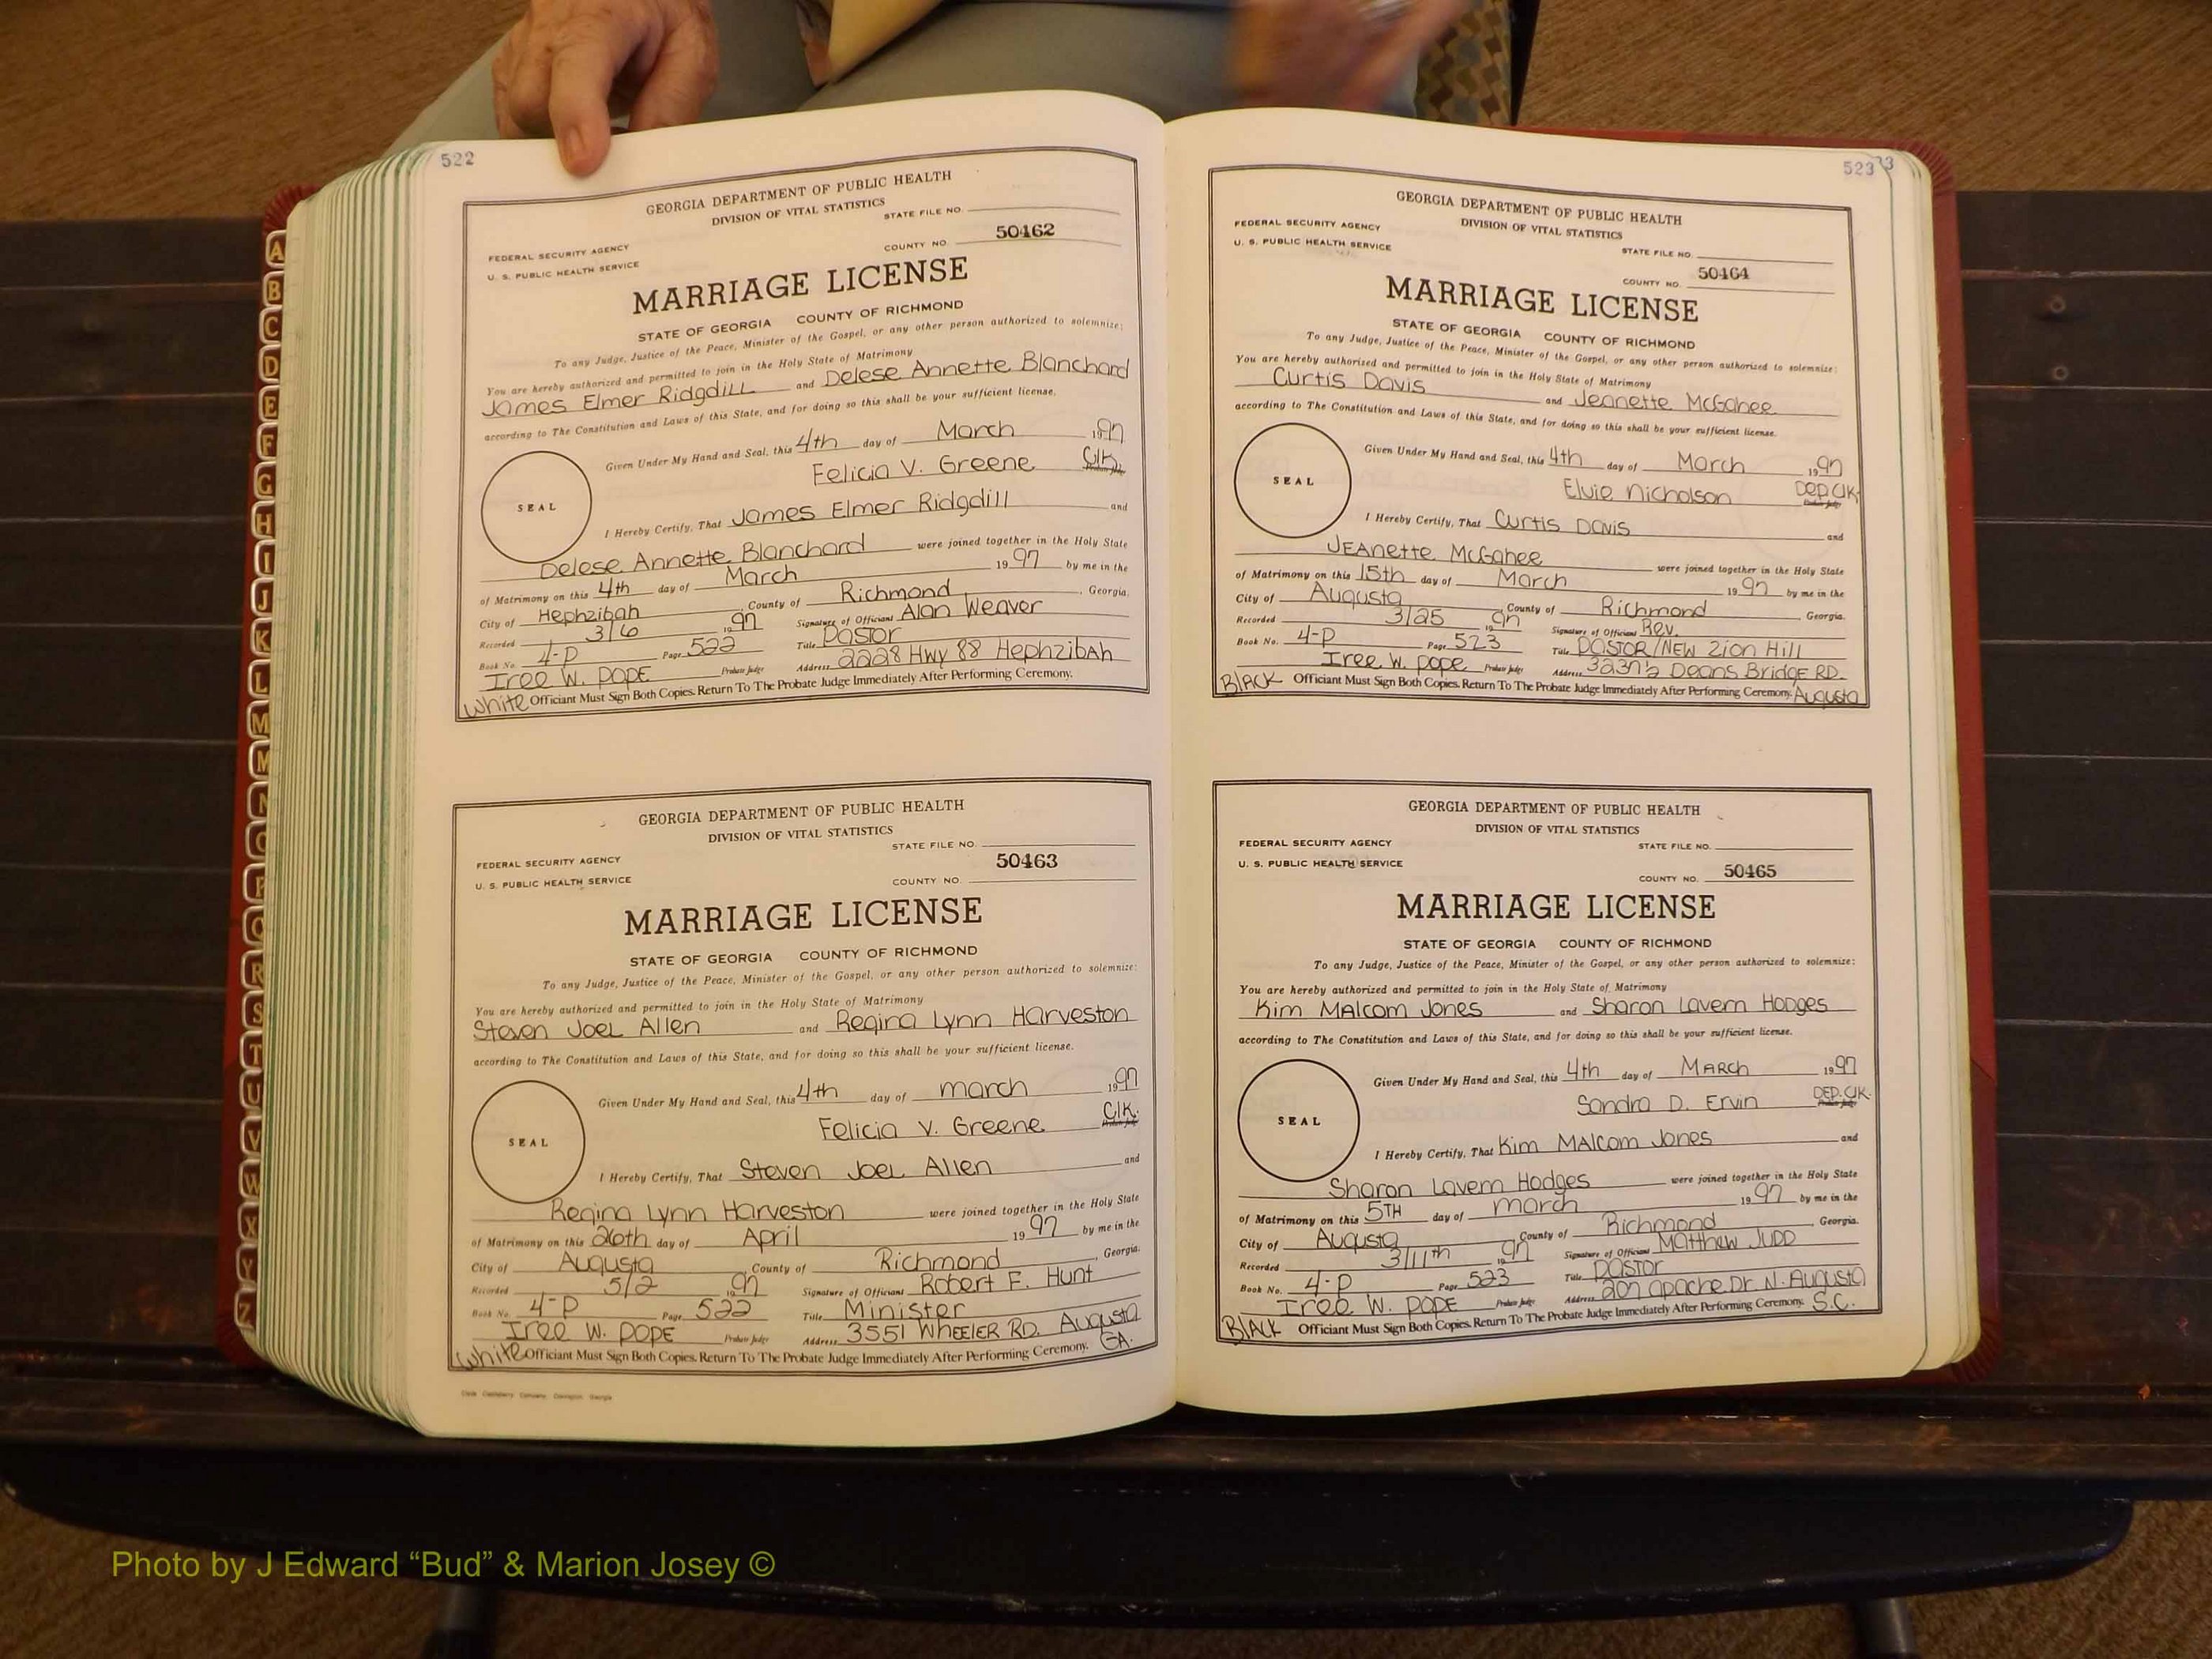 522
GEORGIA DEPARTMENT OF PUBLIC HEALTH
DIVISION OF VITAL STATISTICS
STATE FILE NO.
FEDERAL SECURITY AGENCY
U. S. PUBLIC HEALTH SERVICE
COUNTY NO. 50462
MARRIAGE LICENSE
STATE OF GEORGIA COUNTY OF RICHMOND
To any Judge, Justice of the Peace, Minister of the Gospel, or any other person authorized to solemnize:
You are hereby authorized and permitted to join in the Holy State of Matrimony
James Elmer Ridgdill and Delese Annette Blanchard
according to The Constitution and Laws of this State, and for doing so this shall be your sufficient license.
Given Under My Hand and Seal, this 4th day of March 1997
Felicia V. Greene Clk.
SEAL
I Hereby Certify, That James Elmer Ridgdill and
Delese Annette Blanchard were joined together in the Holy State
of Matrimony on this 4th day of March 1997 by me in the
City of Hephzibah, County of Richmond, Georgia.
Recorded 3/6 1997 Signature of Officiant Alan Weaver
Book No. 4-P Page 522 Title Pastor
Iree W. Pope Probate Judge Address 2228 Hwy 88 Hephzibah
White Officiant Must Sign Both Copies. Return To The Probate Judge Immediately After Performing Ceremony.
GEORGIA DEPARTMENT OF PUBLIC HEALTH
DIVISION OF VITAL STATISTICS
STATE FILE NO.
FEDERAL SECURITY AGENCY
U. S. PUBLIC HEALTH SERVICE
COUNTY NO. 50463
MARRIAGE LICENSE
STATE OF GEORGIA COUNTY OF RICHMOND
To any Judge, Justice of the Peace, Minister of the Gospel, or any other person authorized to solemnize:
You are hereby authorized and permitted to join in the Holy State of Matrimony
Steven Joel Allen and Regina Lynn Harveston
according to The Constitution and Laws of this State, and for doing so this shall be your sufficient license.
Given Under My Hand and Seal, this 4th day of march 1997
Felicia V. Greene Clk.
SEAL
I Hereby Certify, That Steven Joel Allen and
Regina Lynn Harveston were joined together in the Holy State
of Matrimony on this 26th day of April 1997 by me in the
City of Augusta, County of Richmond, Georgia.
Recorded 5/2 1997 Signature of Officiant Robert F. Hunt
Book No. 4-P Page 522 Title Minister
Iree W. Pope Probate Judge Address 3551 Wheeler RD. Augusta
GA.
White Officiant Must Sign Both Copies. Return To The Probate Judge Immediately After Performing Ceremony.
523
GEORGIA DEPARTMENT OF PUBLIC HEALTH
DIVISION OF VITAL STATISTICS
FEDERAL SECURITY AGENCY
U. S. PUBLIC HEALTH SERVICE
STATE FILE NO.
COUNTY NO. 50464
MARRIAGE LICENSE
STATE OF GEORGIA COUNTY OF RICHMOND
To any Judge, Justice of the Peace, Minister of the Gospel, or any other person authorized to solemnize:
You are hereby authorized and permitted to join in the Holy State of Matrimony
Curtis Davis and Jeannette McGahee
according to The Constitution and Laws of this State, and for doing so this shall be your sufficient license.
Given Under My Hand and Seal, this 4th day of March 1997
Elvie Nicholson Dep. Clk.
SEAL
I Hereby Certify, That Curtis Davis and
JEAnette McGahee were joined together in the Holy State
of Matrimony on this 15th day of March 1997 by me in the
City of Augusta, County of Richmond, Georgia.
Recorded 3/25 1997 Signature of Officiant Rev.
Book No. 4-P Page 523 Title PASTOR/NEW Zion Hill
Iree W. Pope Probate Judge Address 3237½ Deans Bridge RD.
BLACK Officiant Must Sign Both Copies. Return To The Probate Judge Immediately After Performing Ceremony. Augusta
GEORGIA DEPARTMENT OF PUBLIC HEALTH
DIVISION OF VITAL STATISTICS
FEDERAL SECURITY AGENCY
STATE FILE NO.
U. S. PUBLIC HEALTH SERVICE
COUNTY NO. 50465
MARRIAGE LICENSE
STATE OF GEORGIA COUNTY OF RICHMOND
To any Judge, Justice of the Peace, Minister of the Gospel, or any other person authorized to solemnize:
You are hereby authorized and permitted to join in the Holy State of Matrimony
Kim Malcom Jones and Sharon Lavern Hodges
according to The Constitution and Laws of this State, and for doing so this shall be your sufficient license.
Given Under My Hand and Seal, this 4th day of March 1997
Sandra D. Ervin DEP. Clk.
SEAL
I Hereby Certify, That Kim Malcom Jones and
Sharon Lavern Hodges were joined together in the Holy State
of Matrimony on this 5TH day of march 1997 by me in the
City of Augusta, County of Richmond, Georgia.
Recorded 3/11th 1997 Signature of Officiant Matthew JUDD
Book No. 4-P Page 523 Title Pastor
Iree W. Pope Probate Judge Address 207 apache Dr. N. Augusta
S.C.
BLACK Officiant Must Sign Both Copies. Return To The Probate Judge Immediately After Performing Ceremony.
A
B
C
D
E
F
G
H
I
J
K
L
M
M
N
O
P
Q
R
S
T
U
V
W
X
Y
Z
Photo by J Edward “Bud” & Marion Josey ©